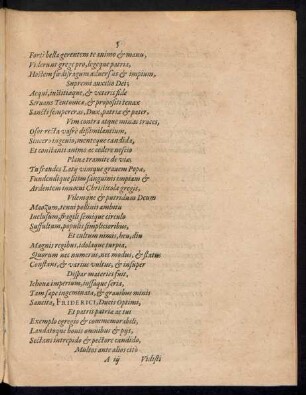 5
Forti bella gerentem te animo & manu,
Viderunt grege pro, legeque patria,
Hostem fœdifragum æ adversus & impium,
Supremo auxilio Dei;
Acqui, iustitiæque, & veteris fidæ
Servans Teutonicæ, & propositi tenax
Sancti semper eras, Dux, patria & pater.
Vim contra atque minas truces,
Osor recta vafre dissimilantium,
Sincero ingenio, mente que candida,
Et constanti animo ac cedere nescio
Plana tramite de viae.
Tu fraudes Latij vimque gravem Papæ,
Fundendique sitim sanguinis impiam &
Ardentem innocui Christicolo gregis,
Vilemque & putridum Deum
Maozim, tenui pollinis ambitu
Inclusum, fragili semique circulo
Suffultum, populis simplicioribus,
Et cultum nimis, heu, diu
Magnis regibus, idolaque turpia,
Quorum nec numerus, nec modus, & status
Constans, & varius vultus, & insuper
Dispar materies fuit,
Ichona imperium, iussaque seria,
Tam sæpe ingeminata, & gravibus minis
Sancita, FRIDERICI, Ducis Optimi,
Et patris patriæ ac tui
Exemplo egregio & commemorabili,
Laudatoque bonis omnibus & pijs,
Sectans intrepido & pectore candido,
Multos ante alios citò
A iij Vidisti